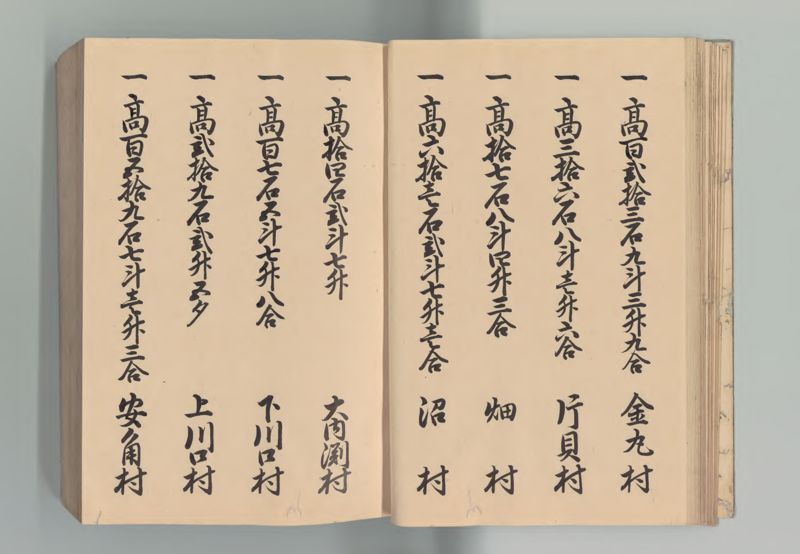 一 高百弐拾三石九斗三升九合 金丸村
一 高三拾六石八斗壱升六合 片貝村
一 高拾七石八斗四升三合 畑村
一 高六拾壱石弐斗七升壱合 沼村
一 高拾四石弐斗七升 大内渕村
一 高百七石五斗七升八合 下川口村
一 高弐拾九石弐升五夕 上川口村
一 高百五拾九石七斗壱升三合 安角村